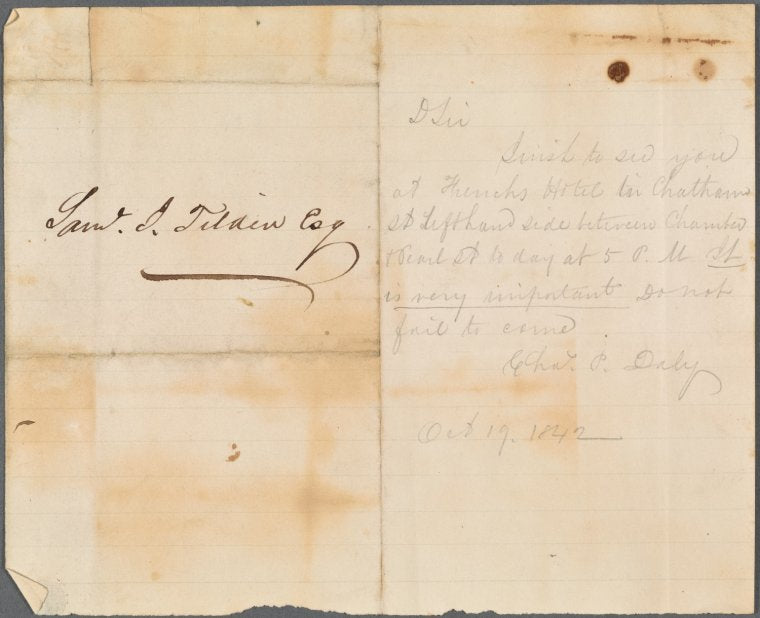 Saml. J. Tilden Esq
D Sir
I wish to see you
at Frenchs Hotel in Chatham
St left hand side between Chamber
& Pearl St to day at 5 P. M It
is very important Do not
fail to come
Chas. P. Daly
Oct 19. 1842